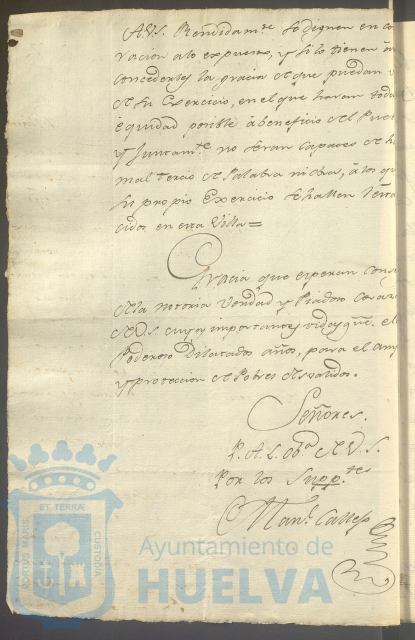 A V.S. Rendidamte. se dignen en co
racion a lo expuesto, y si lo tienen à
concederles la gracia de que puedan
de su Exercicio, en el que haran toda
equidad posible à beneficio del Pue
y Juntamte. no seran capaces de h
mal tercio de Palabra ni obra, à los qu
su propio Exercicio se hallen
cidos en esta Villa =
Gracia que esperan
de la notoria Verdad y Piadoso
de V.S. cuyas importantes vidas gue. el
Poderoso Dilatados años, para el am
y proteccion de Pobres desvalidos.
Señores.
P.A.L. obea. de V.S.
Por los Supptes
Manl. Calleja
ET TERRÆ
PORTUS MARIS
CUSTODIA
Ayuntamiento de
HUELVA